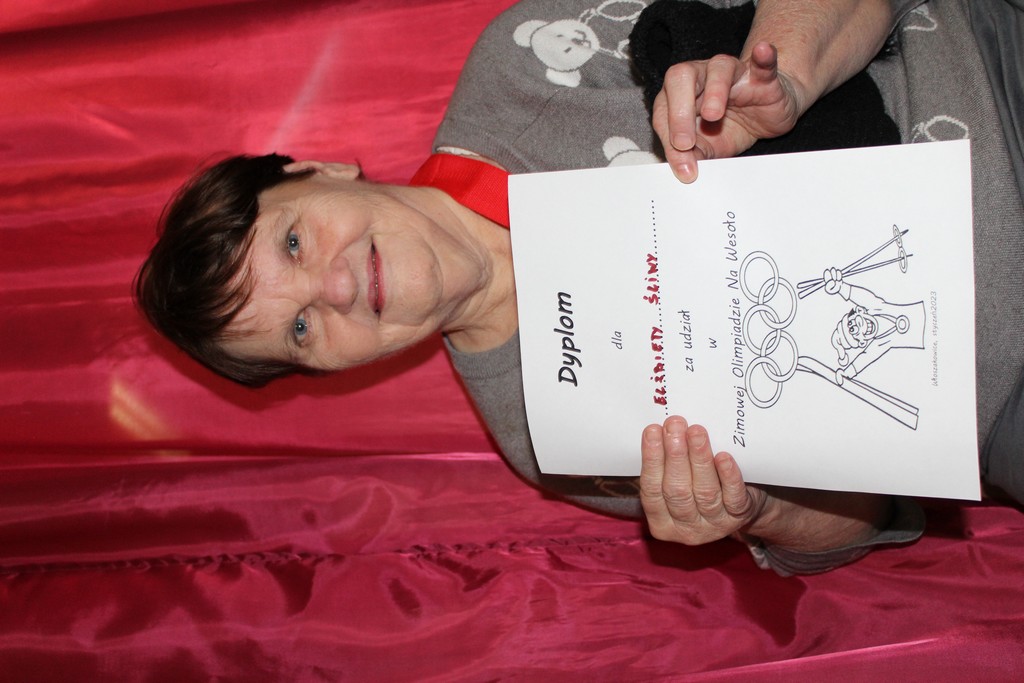 Dyplom
dla
..ELŻBIETY.....ŚLIWY..........
za udział
w
Zimowej Olimpiadzie Na Wesoło
styczeń2023